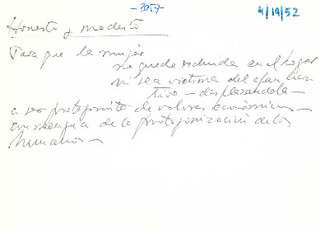 -2057-
4/19/52
Honesto y modesto
Para que la mujer
no quede reducida en el hogar
ni sea victima del afan lucra
tivo - desplazandola -
a ser protagonista de valores económicos -
con mengua de la protagonización de los
humanos -